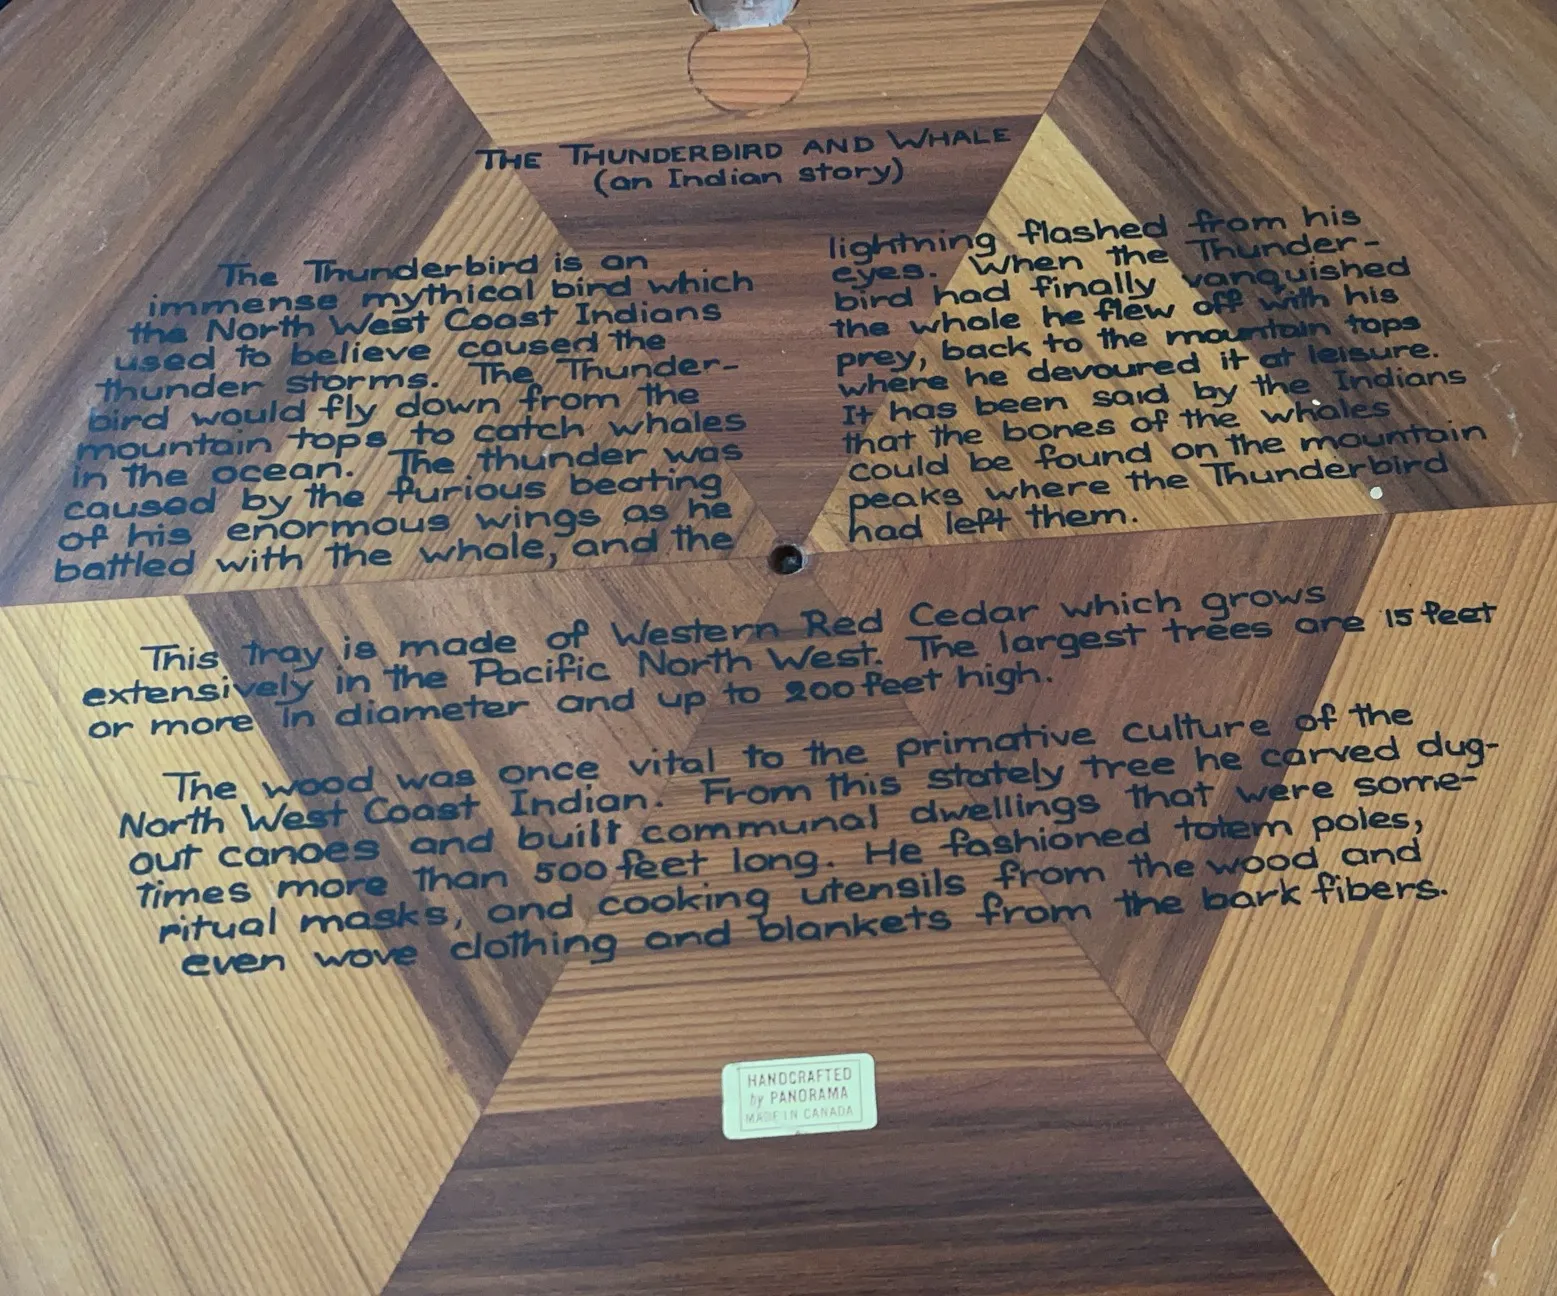 THE THUNDERBIRD AND WHALE
(an Indian story)
The Thunderbird is an
immense mythical bird which
the North West Coast Indians
used to believe caused the
thunder storms. The Thunder-
bird would fly down from the
mountain tops to catch whales
in the ocean. The thunder was
caused by the furious beating
of his enormous wings as he
battled with the whale, and the
lightning flashed from his
eyes. When the Thunder-
bird had finally vanquished
the whale he flew off with his
prey, back to the mountain tops
where he devoured it at leisure.
It has been said by the Indians
that the bones of the whales
could be found on the mountain
peaks where the Thunderbird
had left them.
This tray is made of Western Red Cedar which grows
extensively in the Pacific North West. The largest trees are 15 feet
or more in diameter and up to 200 feet high.
The wood was once vital to the primative culture of the
North West Coast Indian. From this stately tree he carved dug-
out canoes and built communal dwellings that were some-
times more than 500 feet long. He fashioned totem poles,
ritual masks, and cooking utensils from the wood and
even wove clothing and blankets from the bark fibers.
HANDCRAFTED
by PANORAMA
MADE IN CANADA